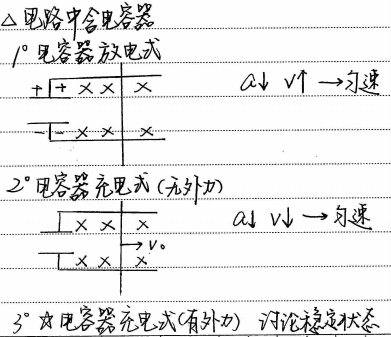 △电路中含电容器
1° 电容器放电式
+ + × × ×
a↓ v↑ →匀速
- - × × ×
2° 电容器充电式(无外力)
× × ×
a↓ v↓ →匀速
→v₀
× × ×
3° ☆电容器充电式(有外力) 讨论稳定状态